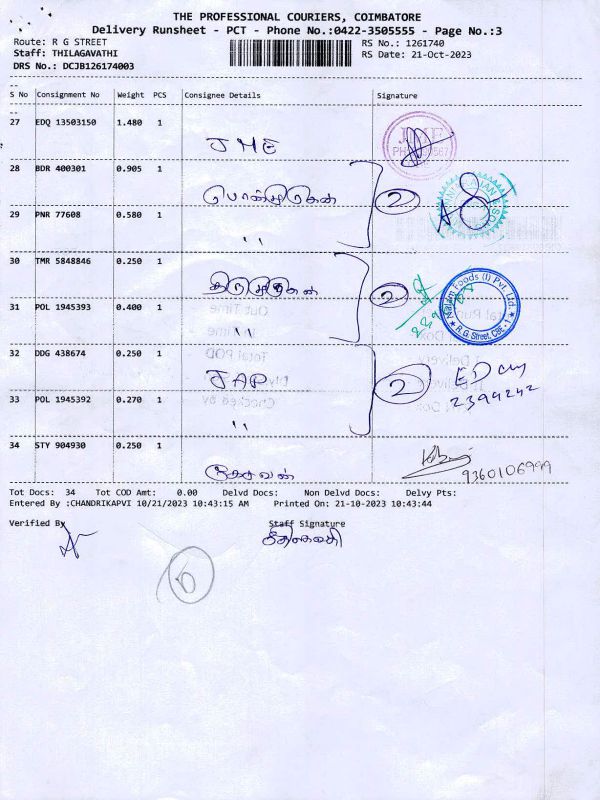 THE PROFESSIONAL COURIERS, COIMBATORE
Delivery Runsheet - PCT - Phone No.:0422-3505555 - Page No.:3
Route: R G STREET
RS No.: 1261740
Staff: THILAGAVATHI
RS Date: 21-Oct-2023
DRS No.: DCJB126174003
S No Consignment No Weight PCS Consignee Details Signature
27 EDQ 13503150 1.480 1
JME
28 BDR 400301 0.905 1
பொன்முருகன் 2
29 PNR 77608 0.580 1
"
30 TMR 5848846 0.250 1
திருமுருகன் 2
Nalam Foods (I) Pvt. Ltd.
★ R.G. Street, CBE - 1 ★
31 POL 1945393 0.400 1
"
32 DDG 438674 0.250 1
JAP 2
2394242
33 POL 1945392 0.270 1
"
34 STY 904930 0.250 1
9360106999
Tot Docs: 34 Tot COD Amt: 0.00 Delvd Docs: Non Delvd Docs: Delvy Pts:
Entered By :CHANDRIKAPVI 10/21/2023 10:43:15 AM Printed On: 21-10-2023 10:43:44
Verified By Staff Signature
5